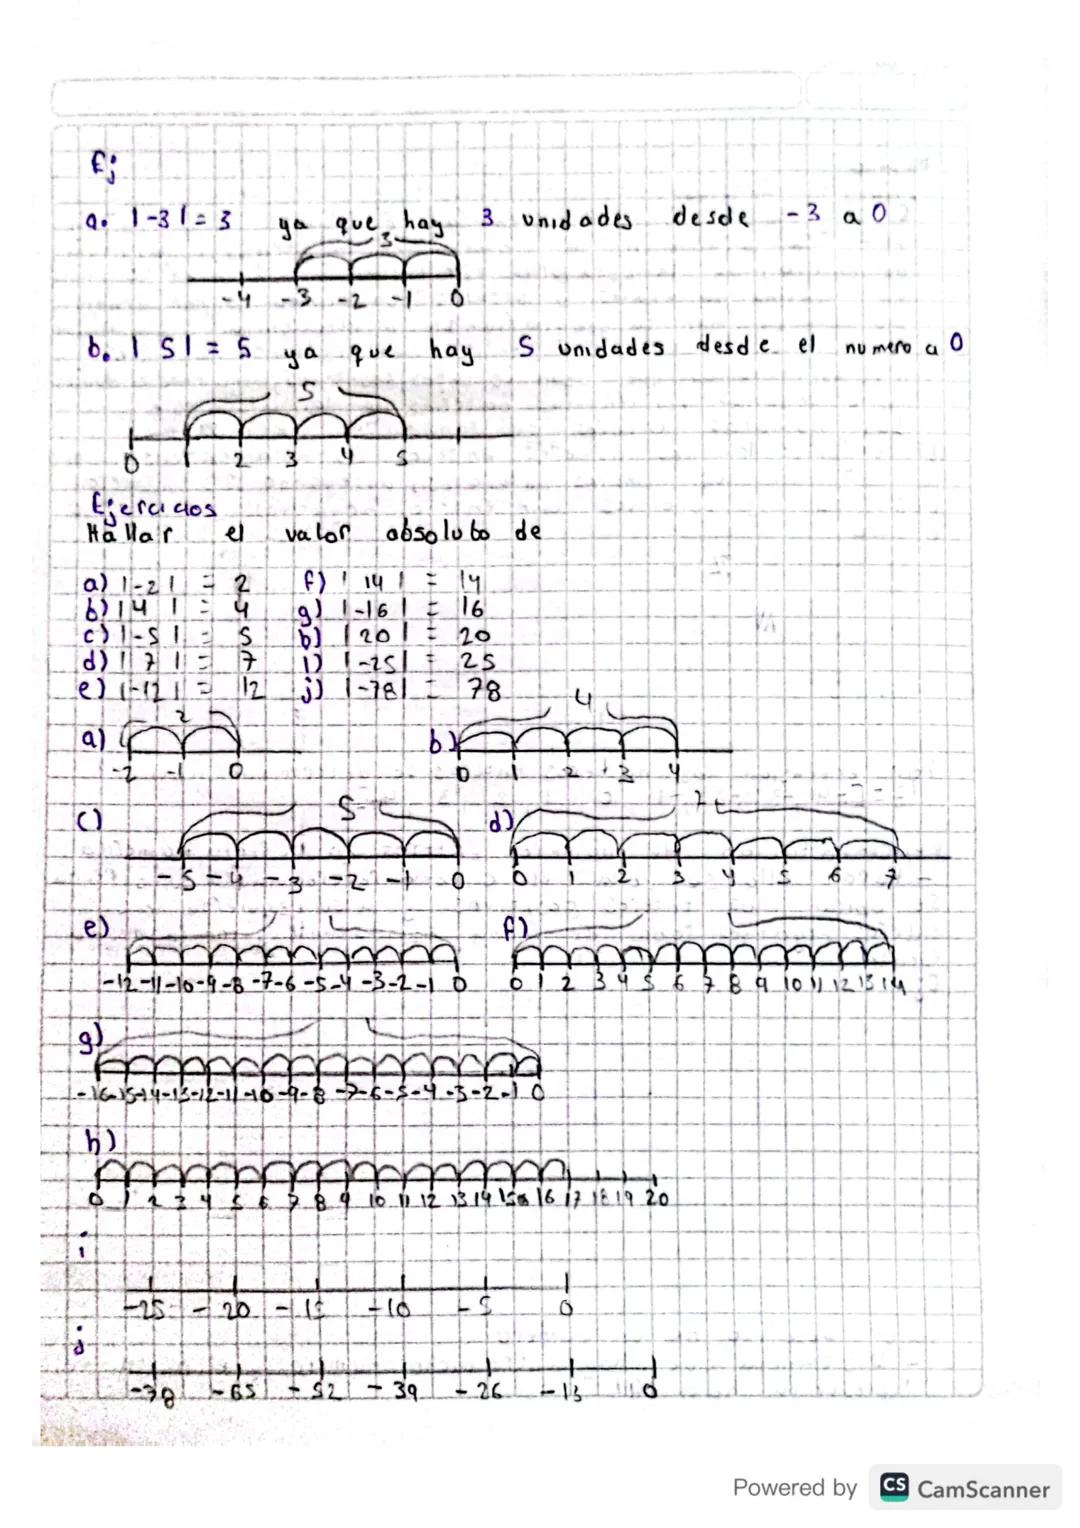 Ej
a. |-3| = 3 ya que hay 3 unidades desde -3 a 0
3
-4 -3 -2 -1 0
b. | 5| = 5 ya que hay 5 unidades desde el numero a 0
5
0 1 2 3 4 5
Ejercicios
Hallar el valor absoluto de
a) |-2| = 2 f) | 14 | = 14
b) |4 | = 4 g) |-16 | = 16
c) |-5 | = 5 h) | 20 | = 20
d) | 7 | = 7 i) |-25| = 25
e) |-12 | = 12 j) |-78| = 78
2 4
a) b)
-2 -1 0 0 1 2 3 4
5 7
c) d)
-5 -4 -3 -2 -1 0 0 1 2 3 4 5 6 7
e) f)
-12 -11 -10 -9 -8 -7 -6 -5 -4 -3 -2 -1 0 0 1 2 3 4 5 6 7 8 9 10 11 12 13 14
g)
-16 -15 -14 -13 -12 -11 -10 -9 -8 -7 -6 -5 -4 -3 -2 -1 0
h)
0 1 2 3 4 5 6 7 8 9 10 11 12 13 14 15 16 17 18 19 20
i
-25 -20 -15 -10 -5 0
j
-78 -65 -52 -39 -26 -13 0
Powered by CS CamScanner